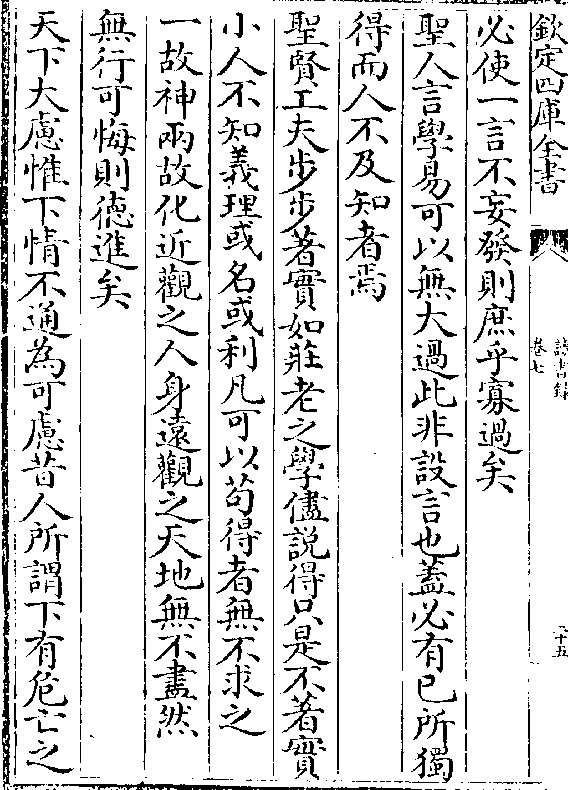 欽定四庫全書
讀書録
卷七
二十五
必使一言不妄發則庶乎寡過矣
聖人言學易可以無大過此非設言也蓋必有已所獨
得而人不及知者焉
聖賢工夫步步著實如莊老之學儘説得只是不著實
小人不知義理或名或利凡可以苟得者無不求之
一故神兩故化近觀之人身遠觀之天地無不盡然
無行可悔則德進矣
天下大慮惟下情不通為可慮昔人所謂下有危亡之